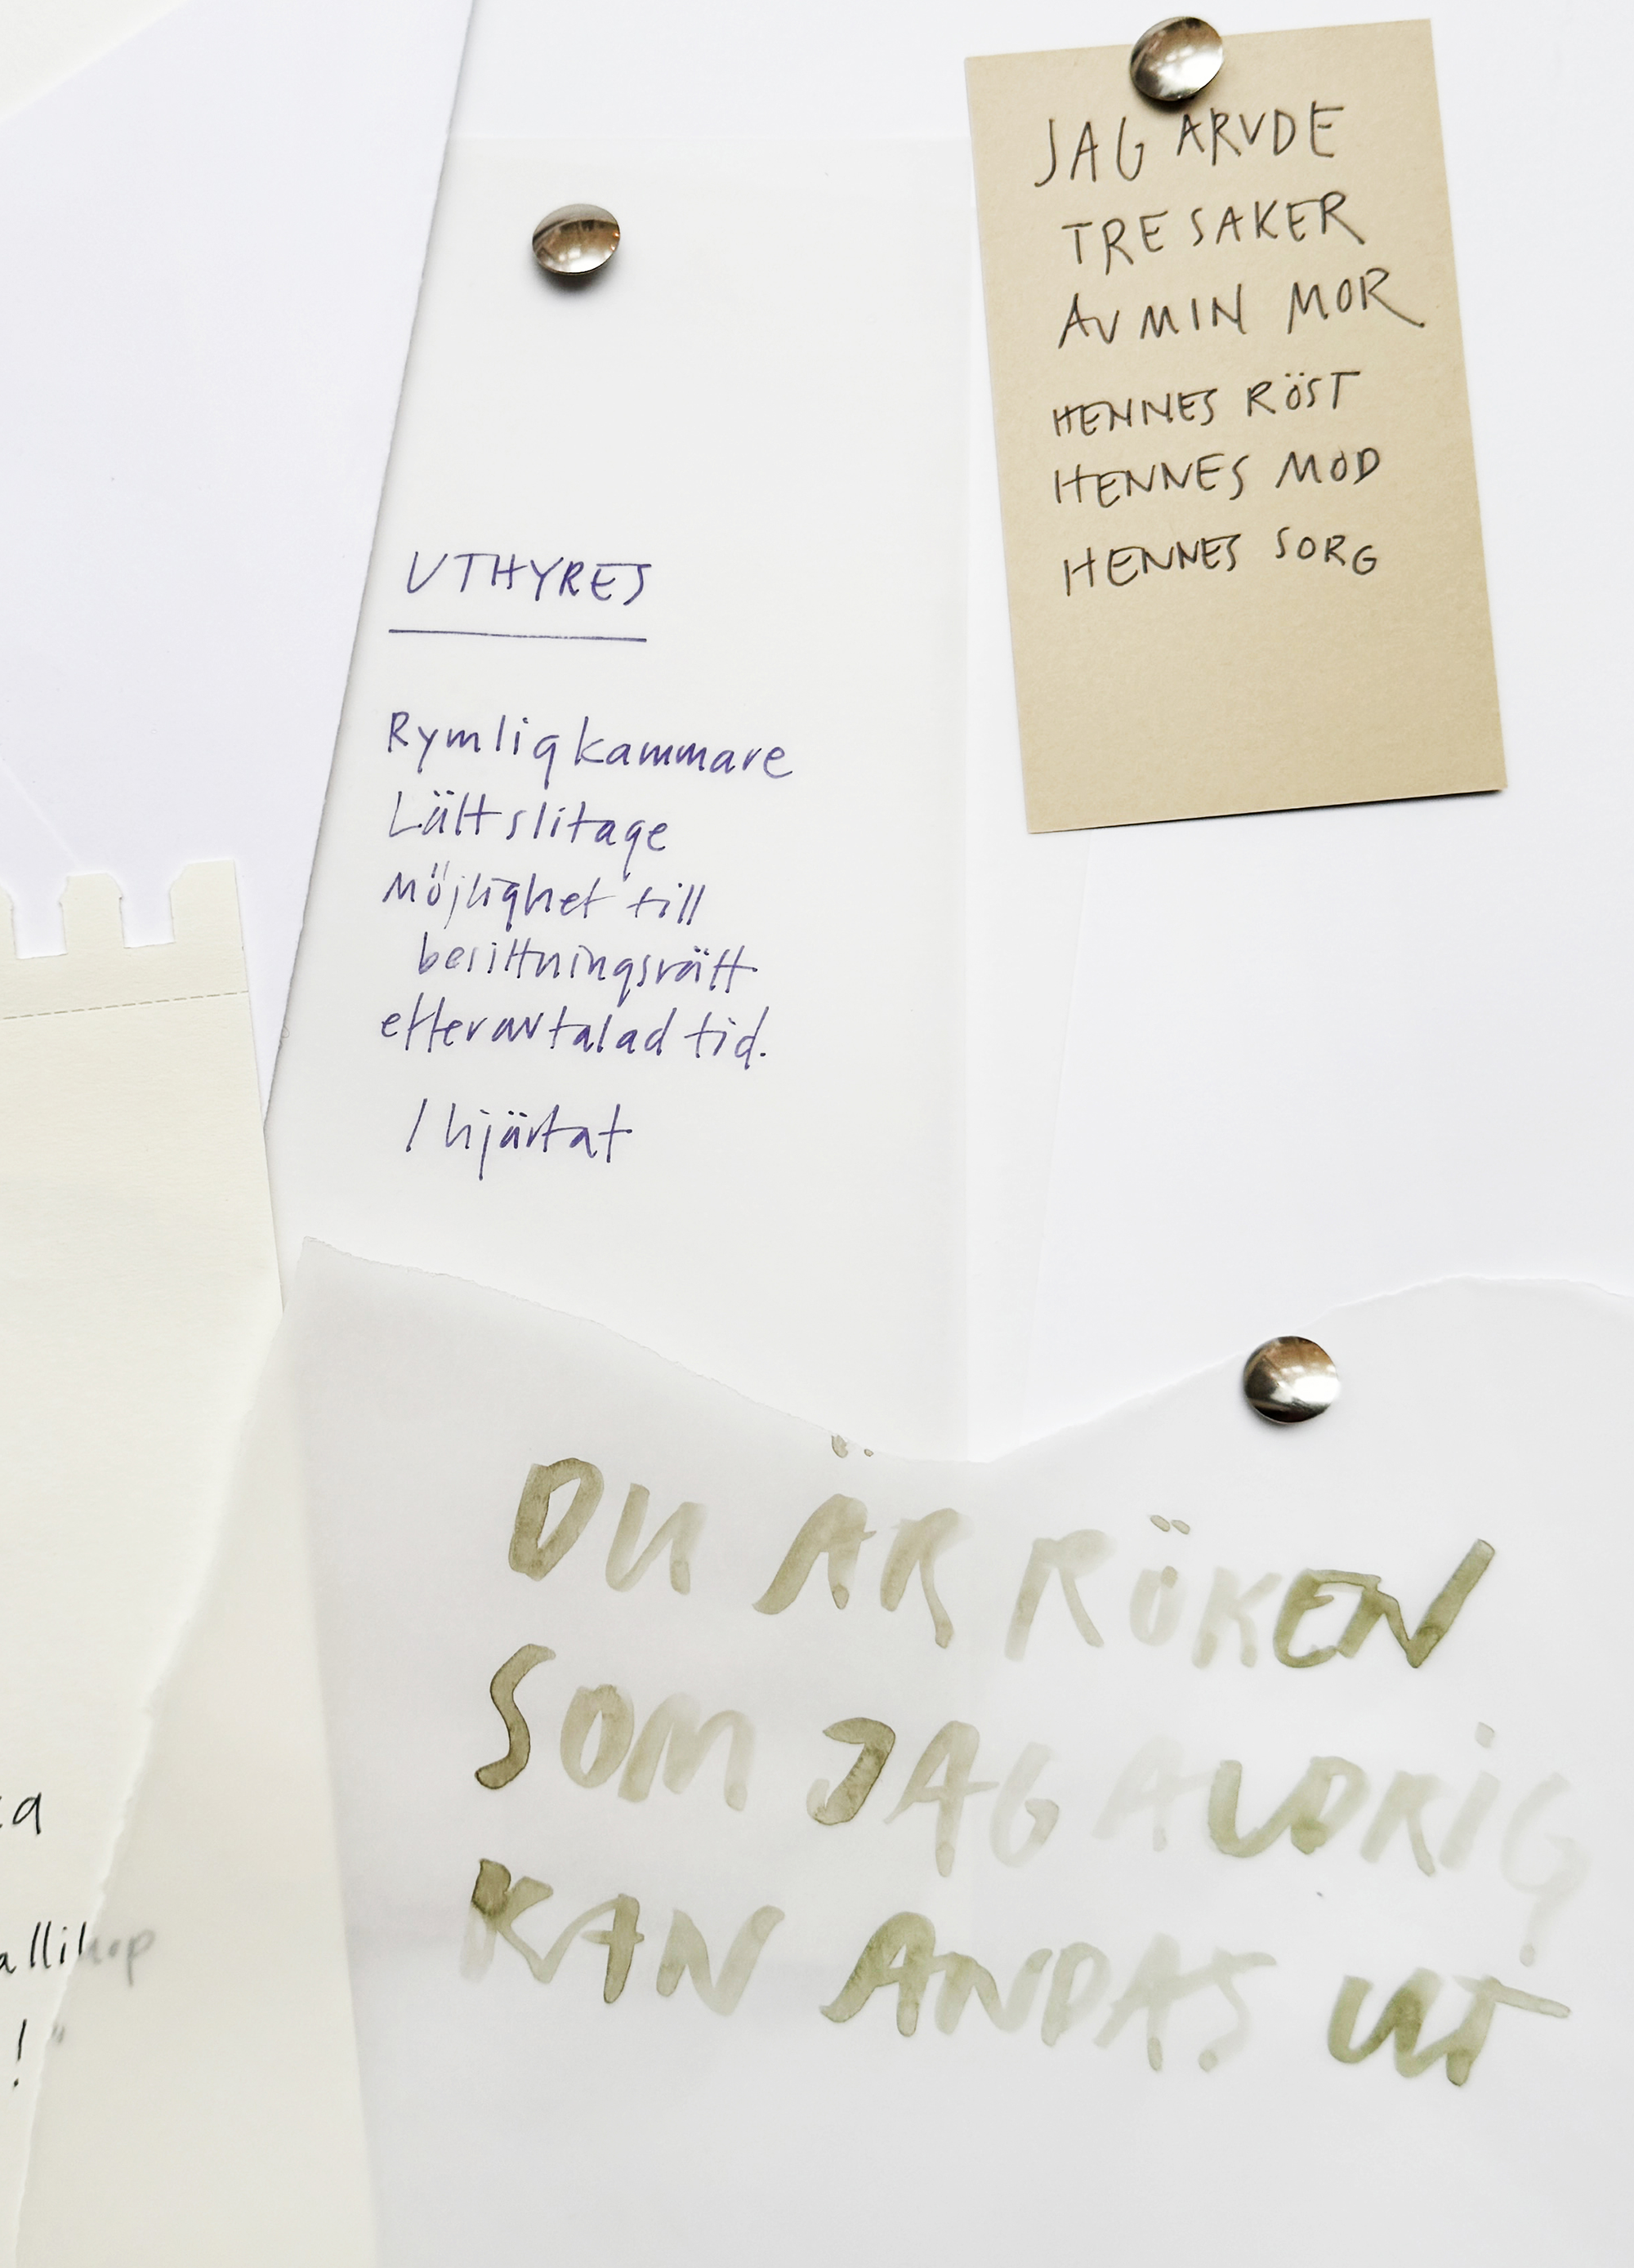 JAG ARVDE
TRE SAKER
AV MIN MOR
HENNES RÖST
HENNES MOD
HENNES SORG
UTHYRES
Rymlig kammare
Lätt slitage
Möjlighet till
besittningsrätt
efter avtalad tid.
/ hjärtat
DU ÄR RÖKEN
SOM JAG ALDRIG
KAN ANDAS UT
allihop
!"